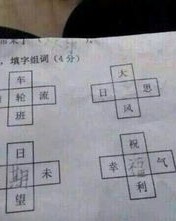 填字组词(4分)
车
轮 流
班
大
日 思
风
日
期 未
望
祝
幸 福 气
利